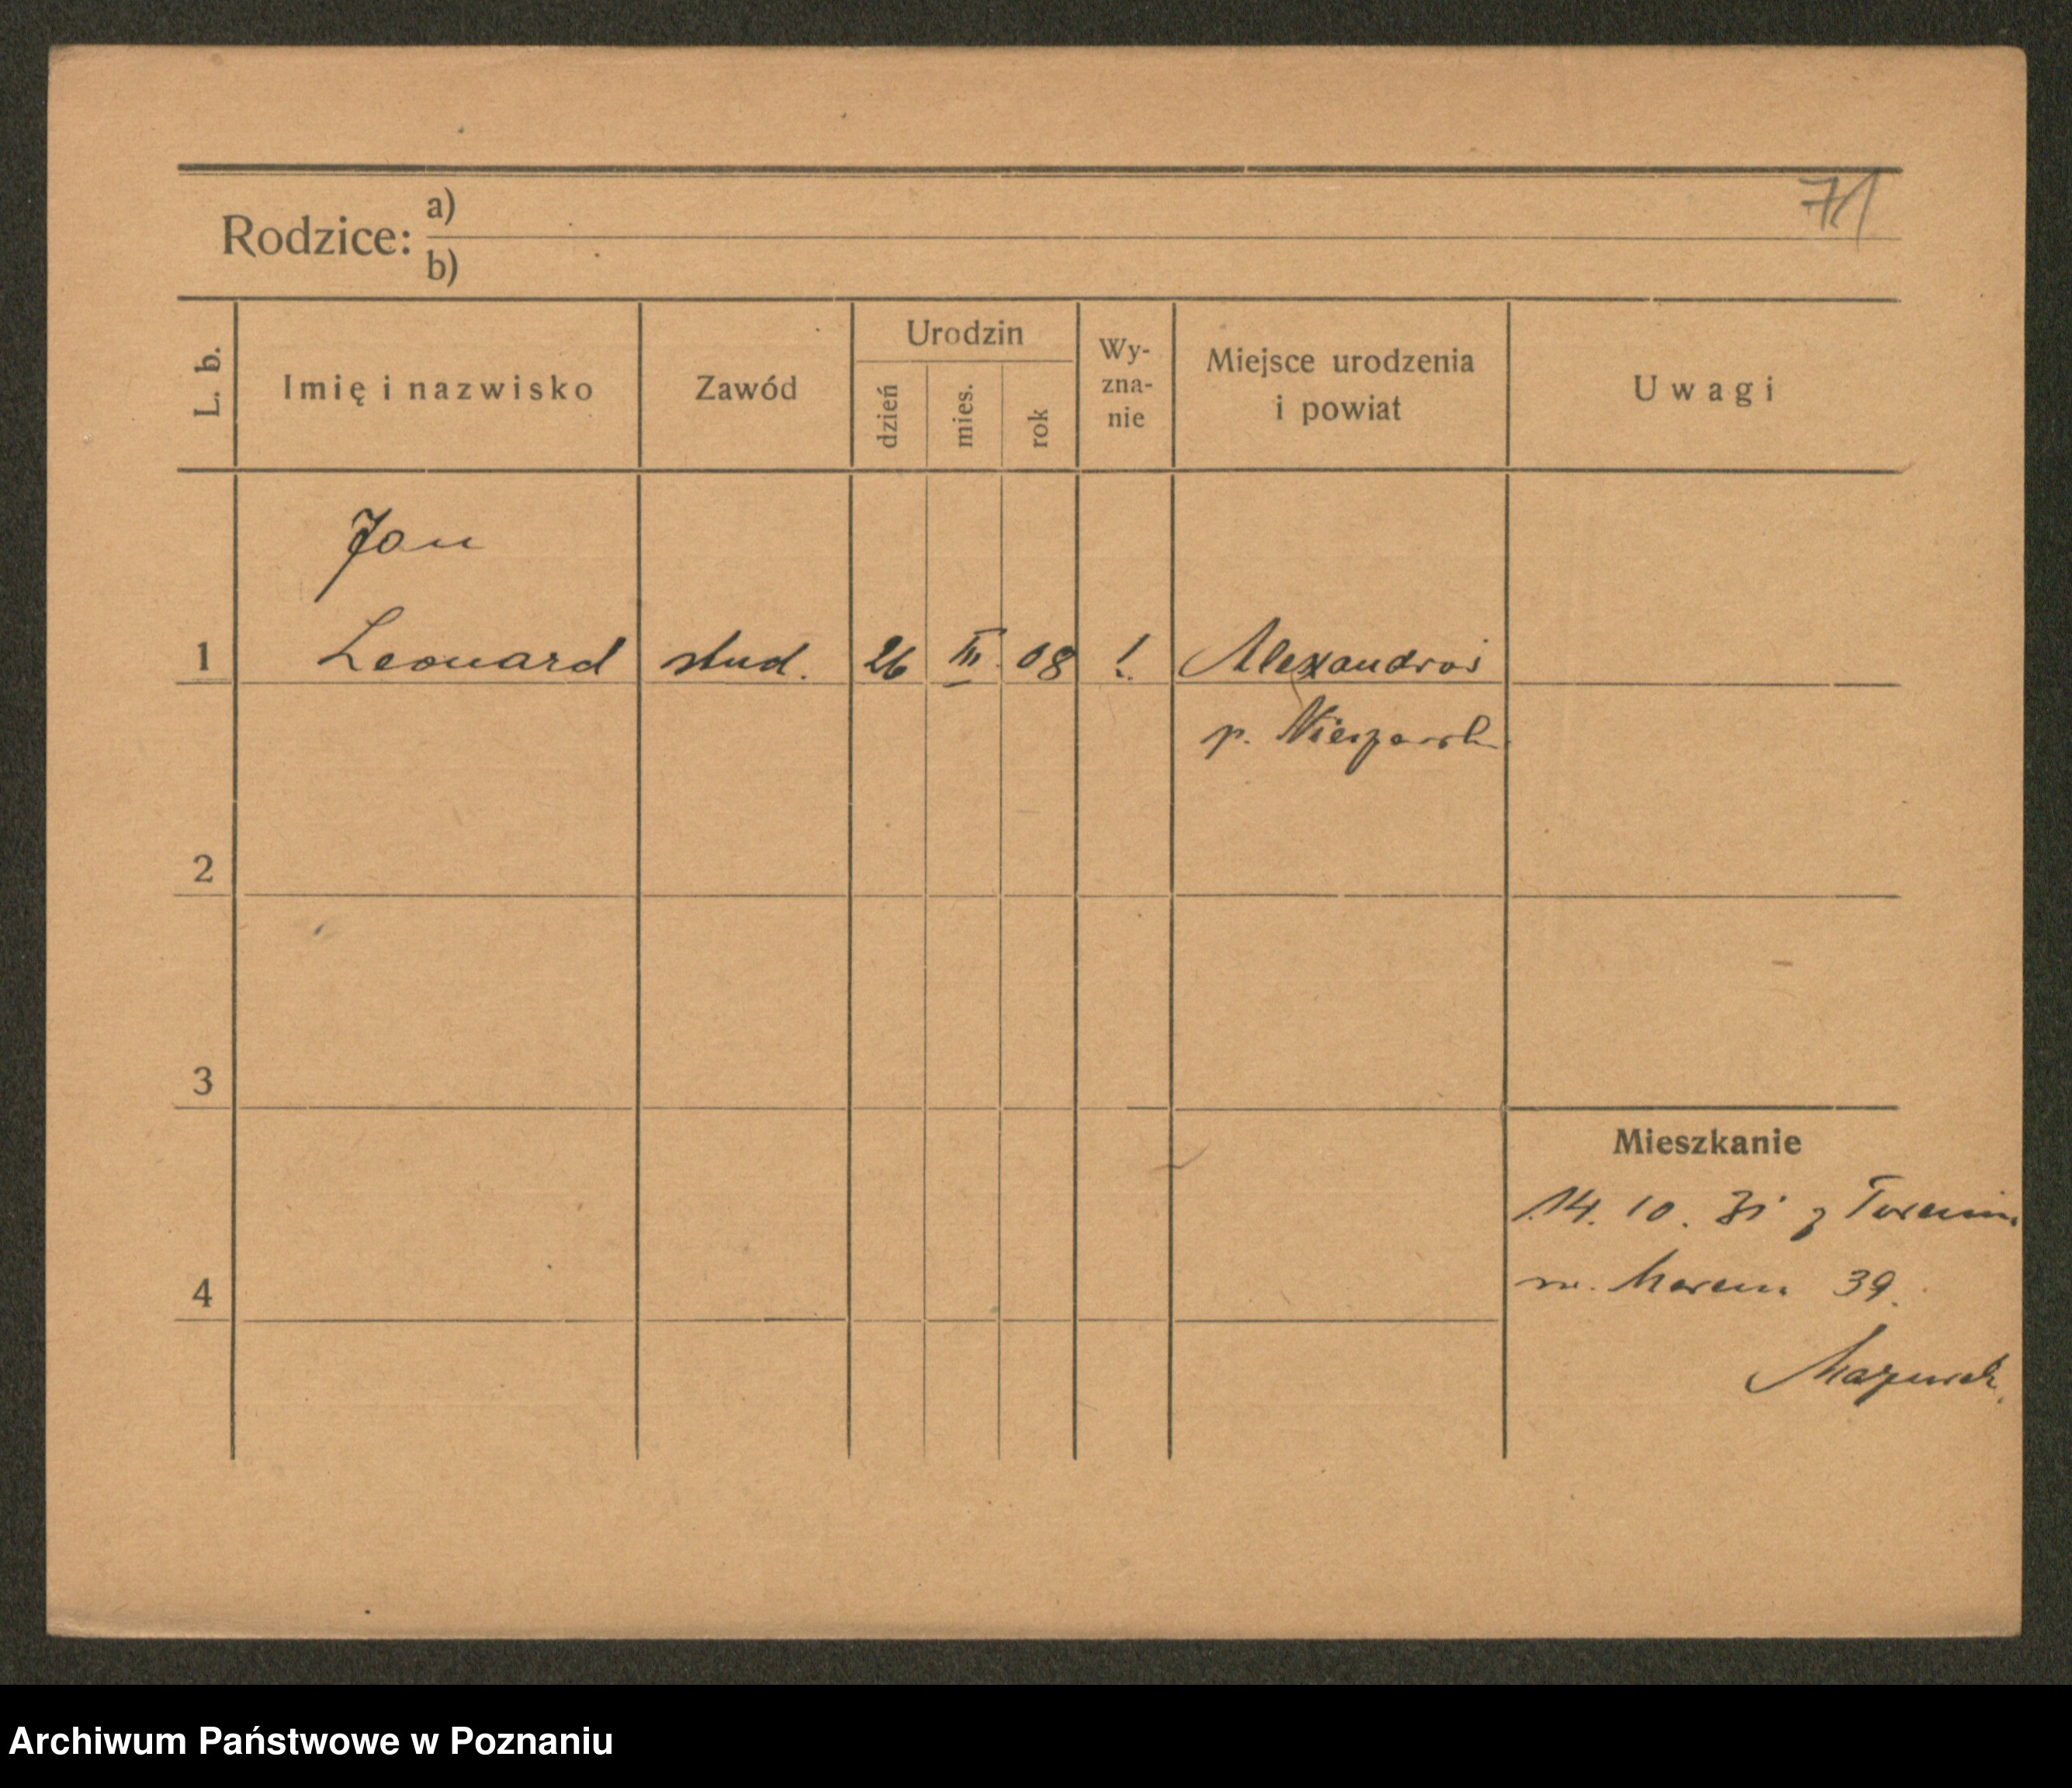 71
Rodzice: a)
b)
L. b. Imię i nazwisko Zawód Urodzin dzień mies. rok Wy-zna-nie Miejsce urodzenia i powiat Uwagi
Jan
1 Leonard stud. 26 III. 08 Alexandrów
p.
2
3
Mieszkanie
14. 10. 31 z
4 39.
Mazurek
Archiwum Państwowe w Poznaniu